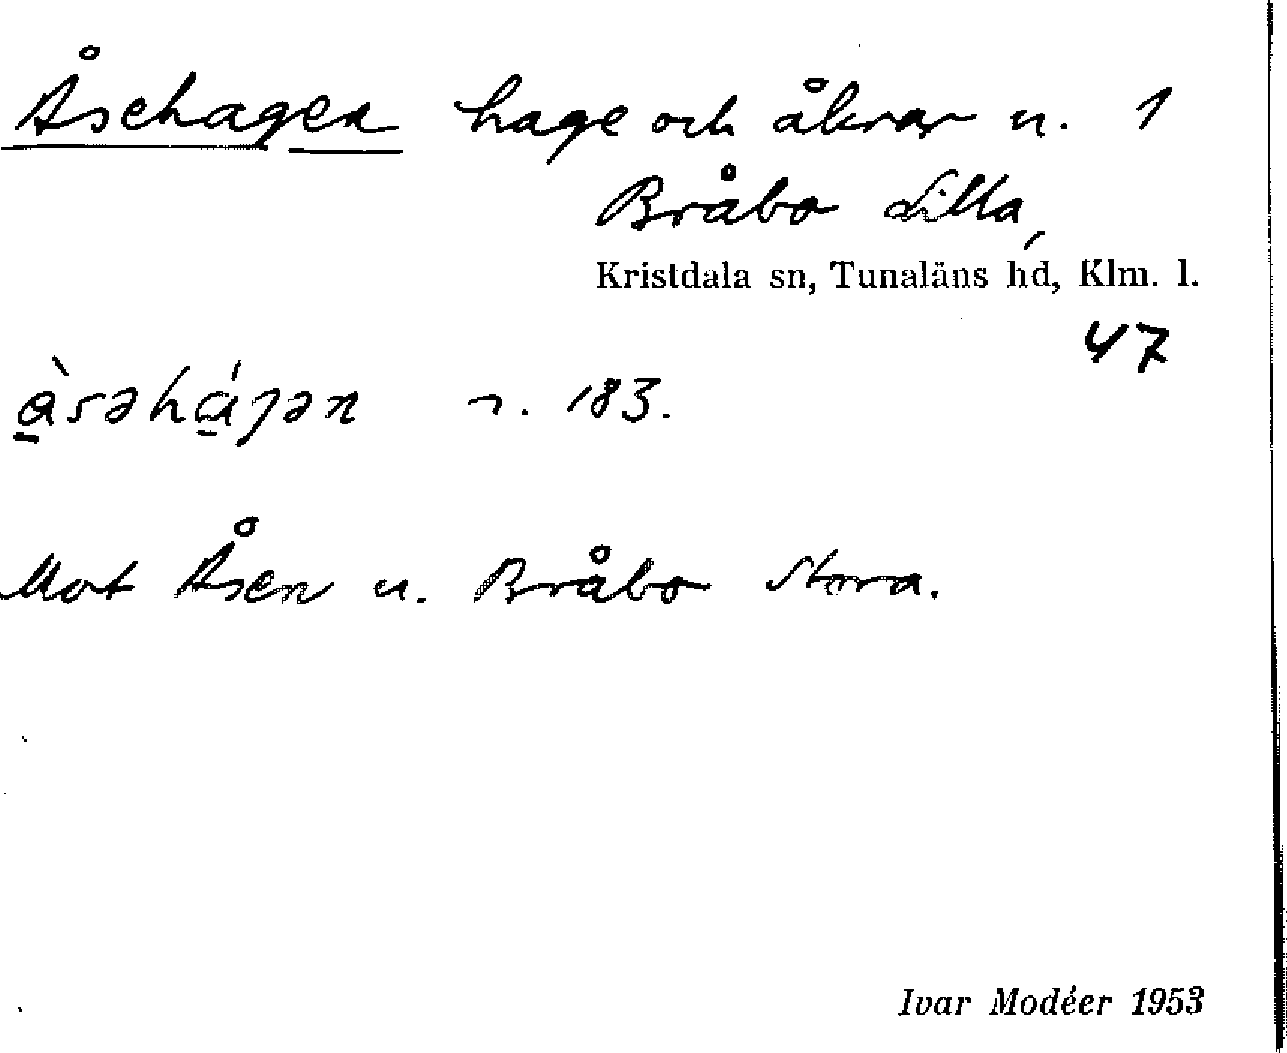 Åsehagen hage och åkrar u. 1
Bråbo Lilla,
Kristdala sn, Tunaläns hd, Klm. l.
47
à̱səhá̱ɡən n. 183.
Mot Åsen u. Bråbo Stora.
Ivar Modéer 1953